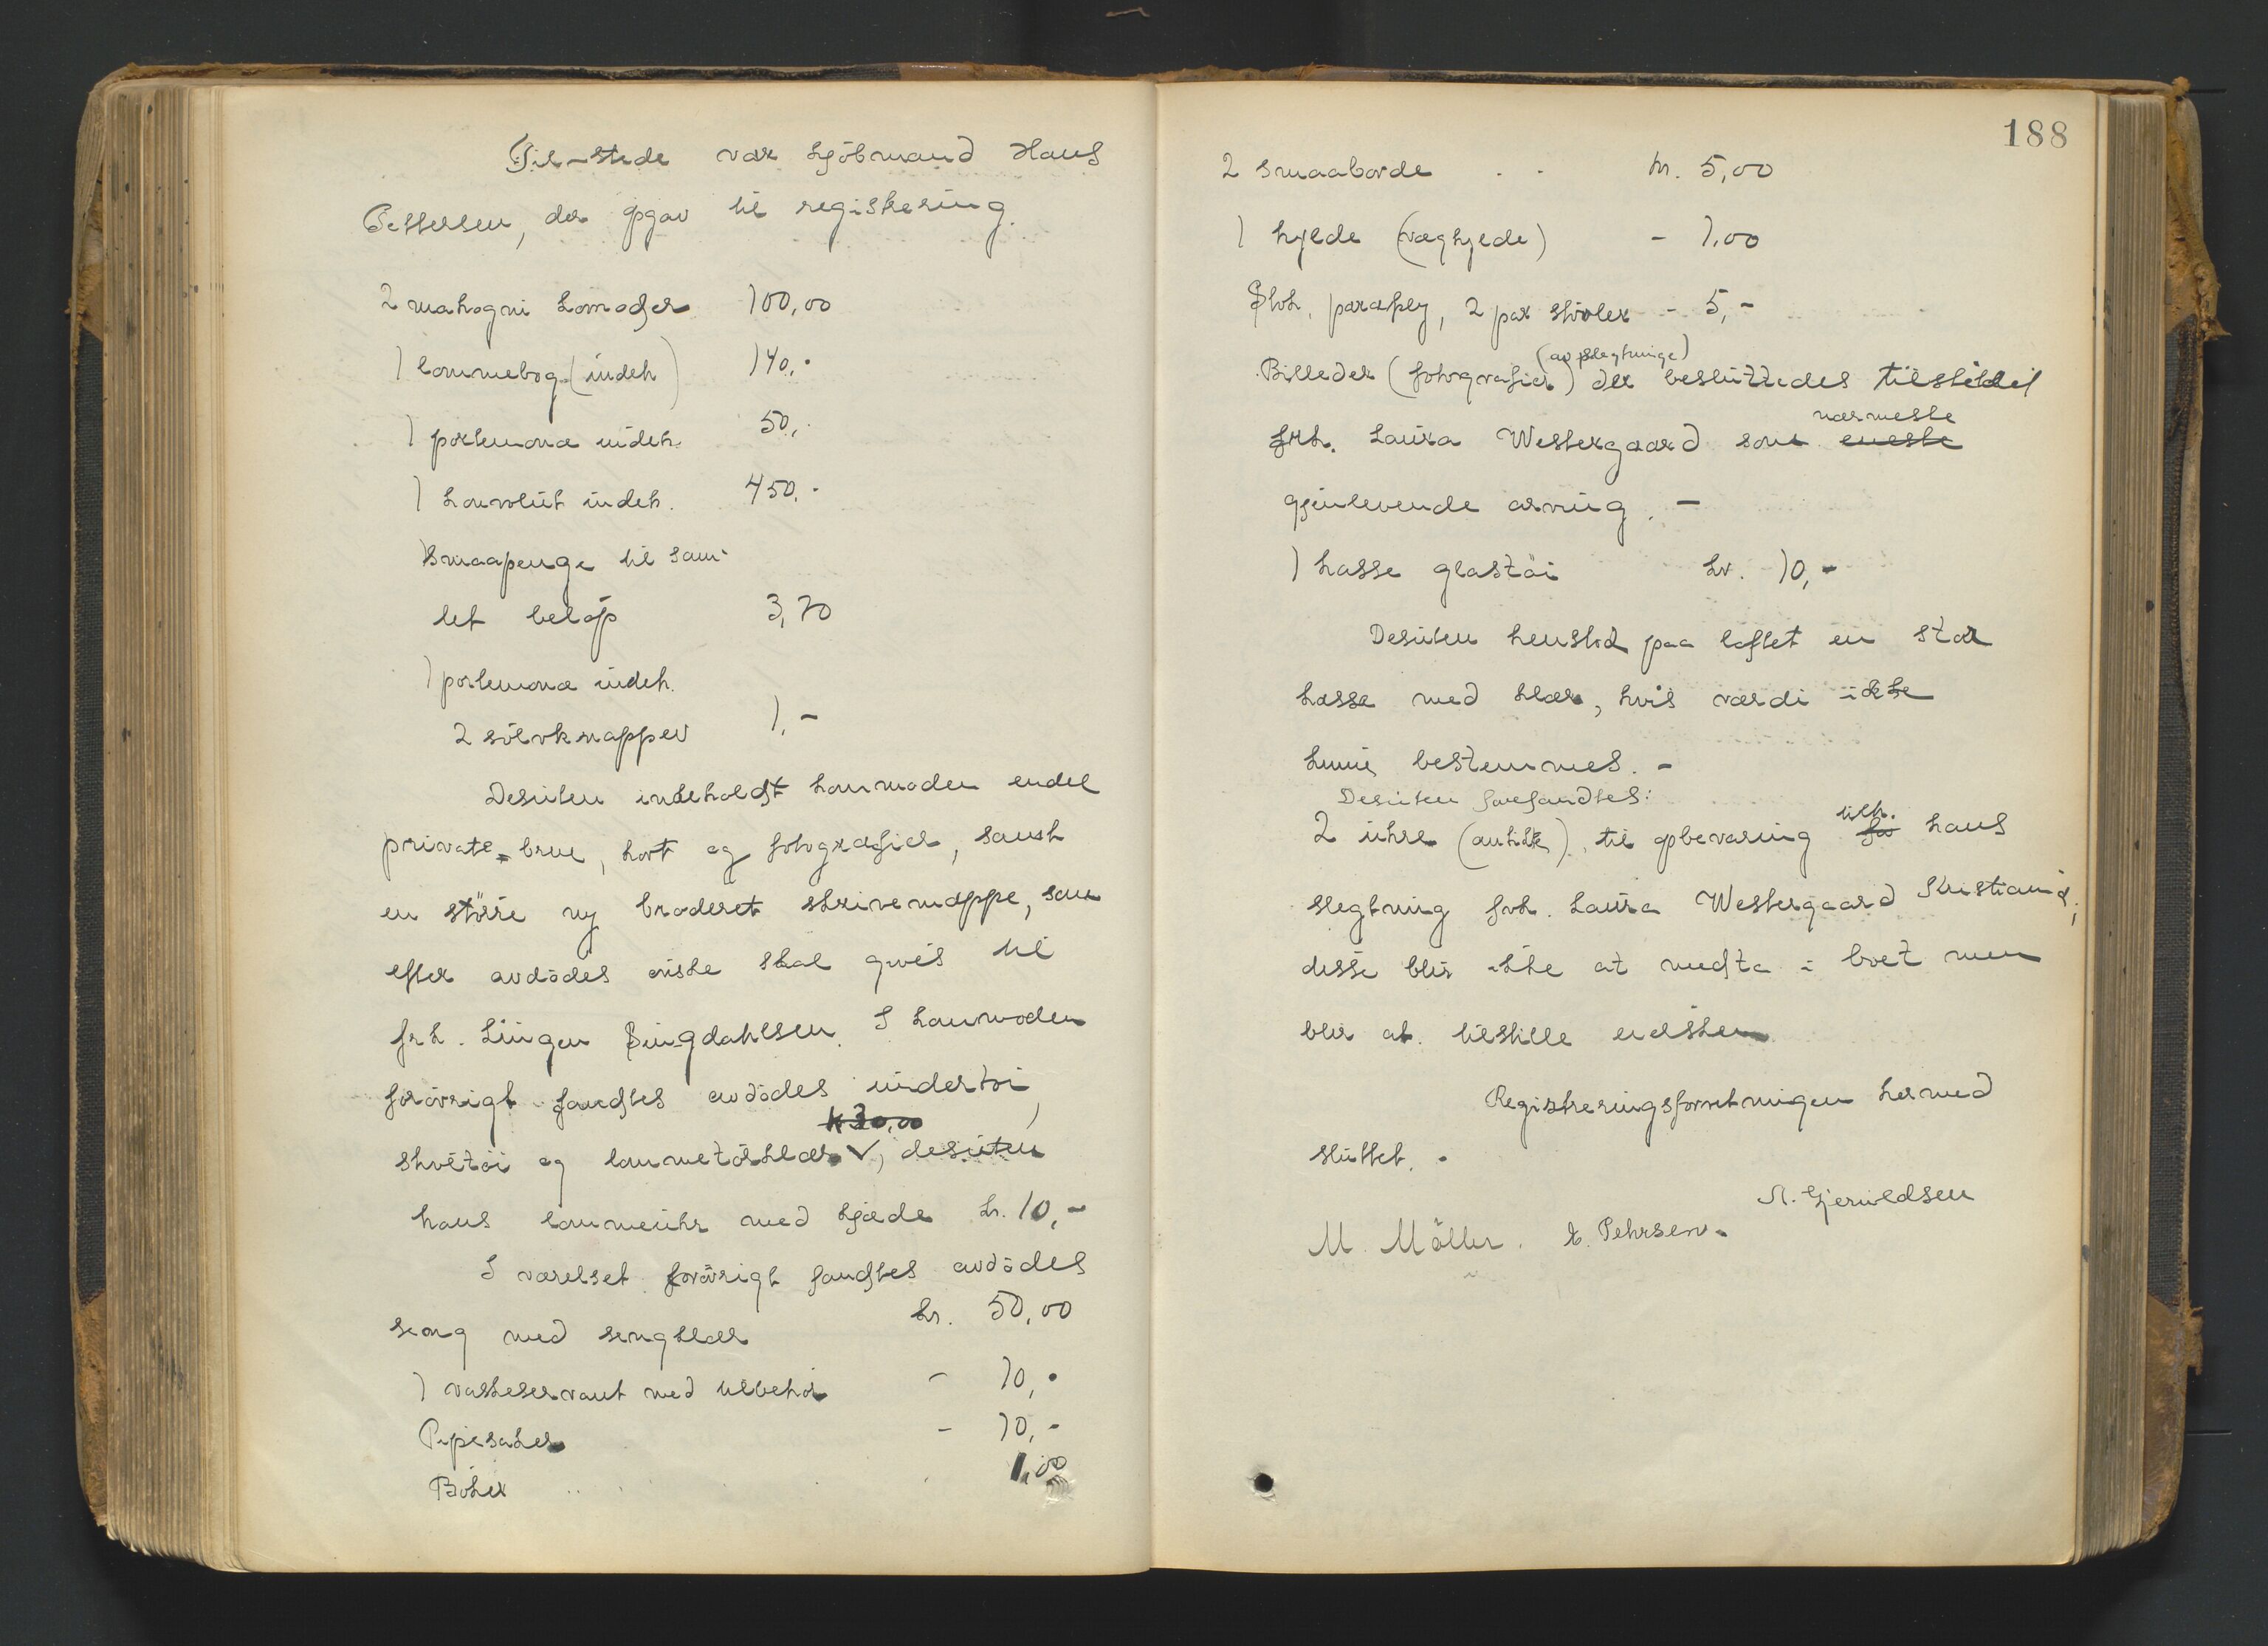 Til-stede var kjöbmand Hans
Pettersen, der opgav til registrering.
2 mahogni komoder 100,00
1 lommebog (indeh) 140,-
1 portemonæ indeh. 50,-
1 konvolut indeh. 450.-
Smaapenge til sam-
let belöp 3,70
1 portemonæ indeh.
2 sölvknapper 1,-
Desuten indeholdt kommoden endel
private breve, kort og fotografier, samt
en större ny broderet skrivemappe, som
efter avdödes önske skal gives til
frk. Ringdahlsen. I kommoden
forövrigt fandtes avdödes undertöi,
kr 30,00
skrötöi og lommetörklær V, desuten
hans lommeuhr med kjæde kr. 10,-
I værelset forövrigt fandtes avdödes
seng med sengklær kr. 50,00
1 vaskeservant med tilbehör - 10,-
Pipesaker - 10,-
Böker 1,00
188
2 smaaborde . . kr. 5,00
1 hylde (væghylde) - 1,00
Stok, paraply, 2 par stövler - 5,-
(av slegtninge)
Billeder (fotografier) der besluttedes tilstillet
nærmeste
frk. Laura Westergaard som eneste
gjenlevende arving. -
1 kasse glastöi kr. 10,-
Desuten henstod paa loftet en stor
kasse med klær, hvis værdi ikke
kunne bestemmes. -
Desuten forefandtes:
tilh.
2 uhre (antik), til opbevaring for hans
slegtning frk. Laura Westergaard Kristiania,
disse blir ikke at medta i boet men
blir at tilstille eiersken
Registreringsforretningen hermed
sluttet. -
A. Gjeruldsen
M. Möller. E. Pehrsen.